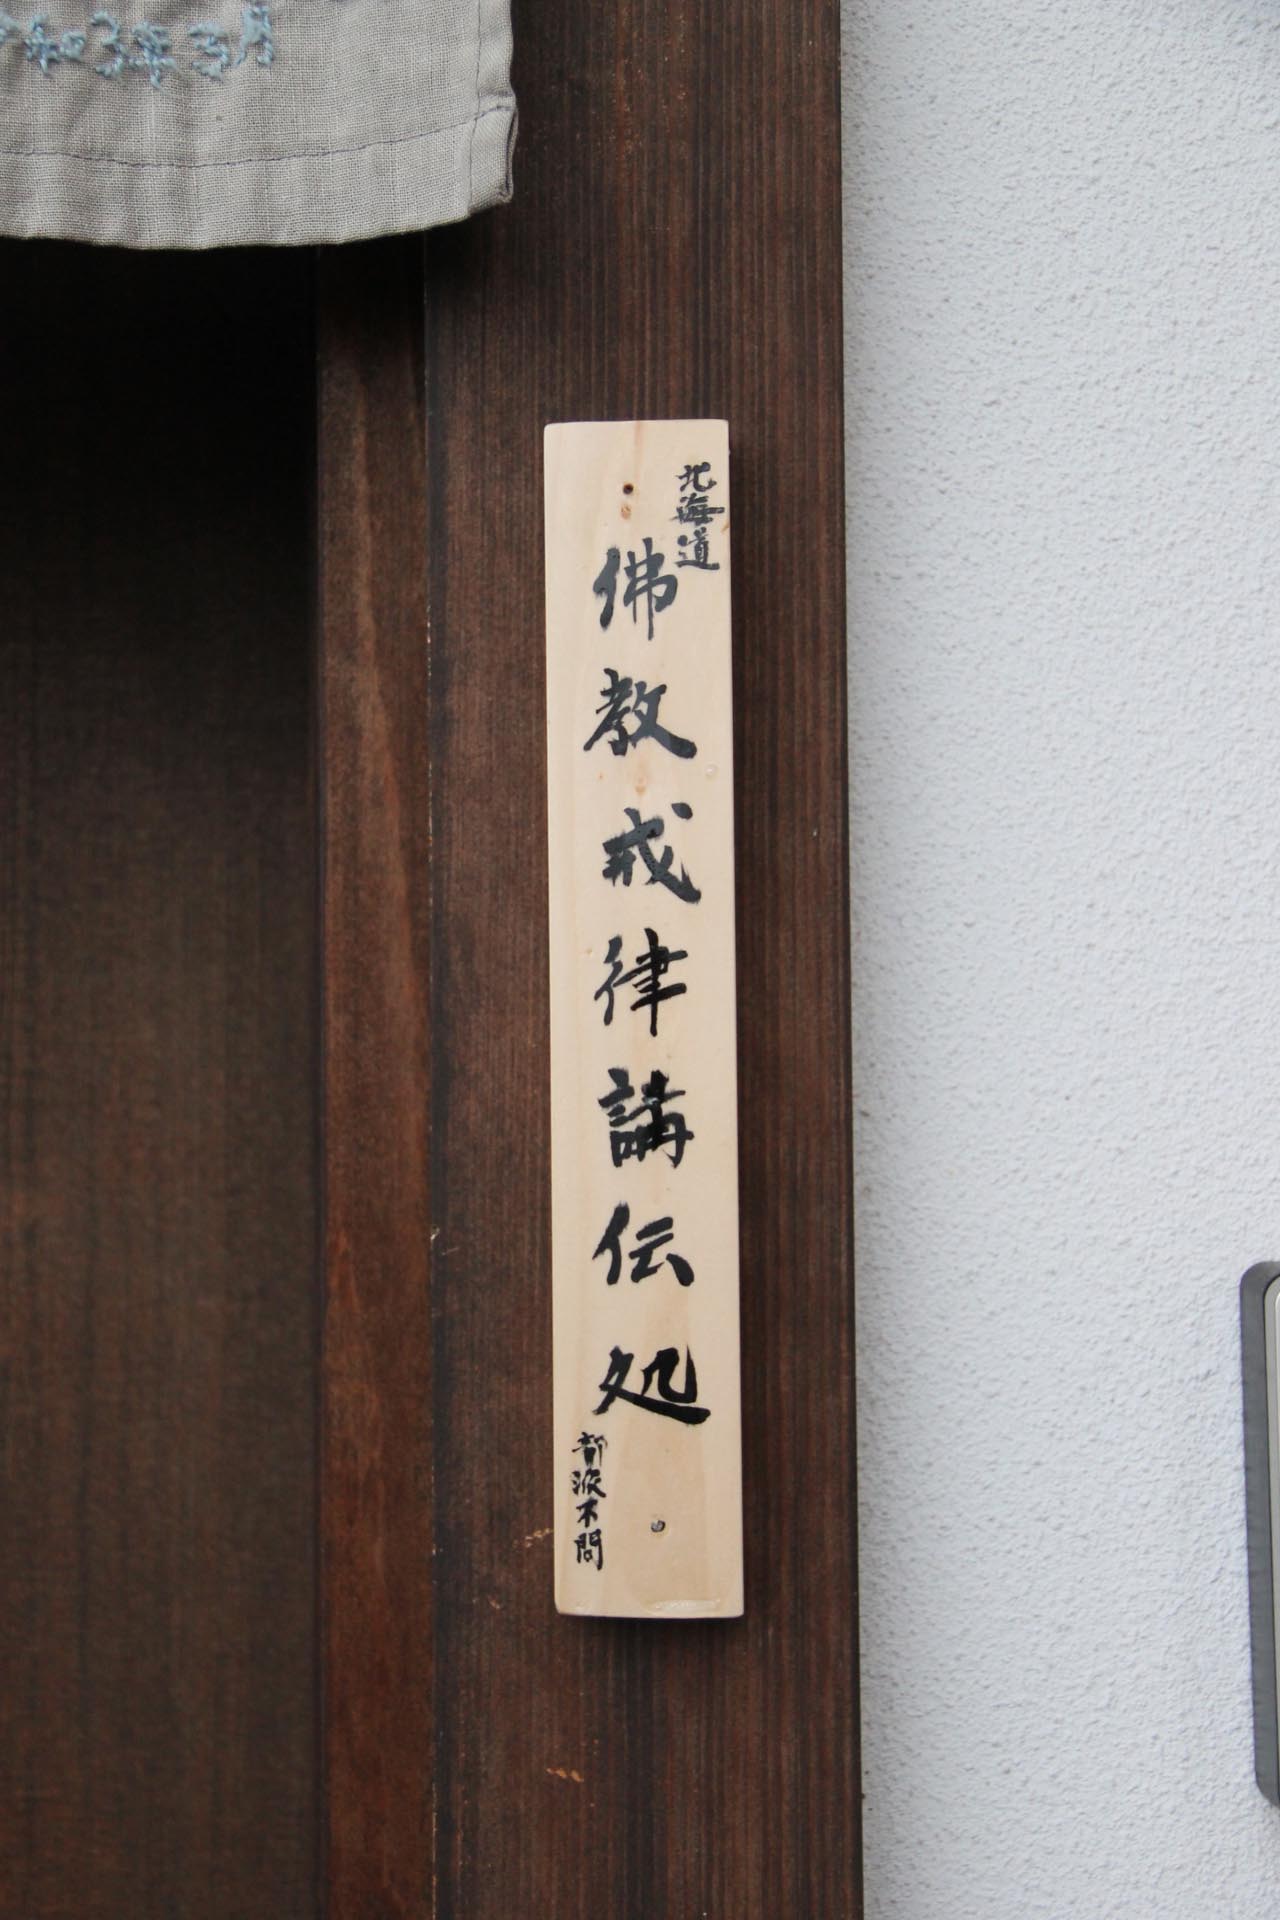 令和3年3月
北海道
佛教戒律講伝処
部派不問